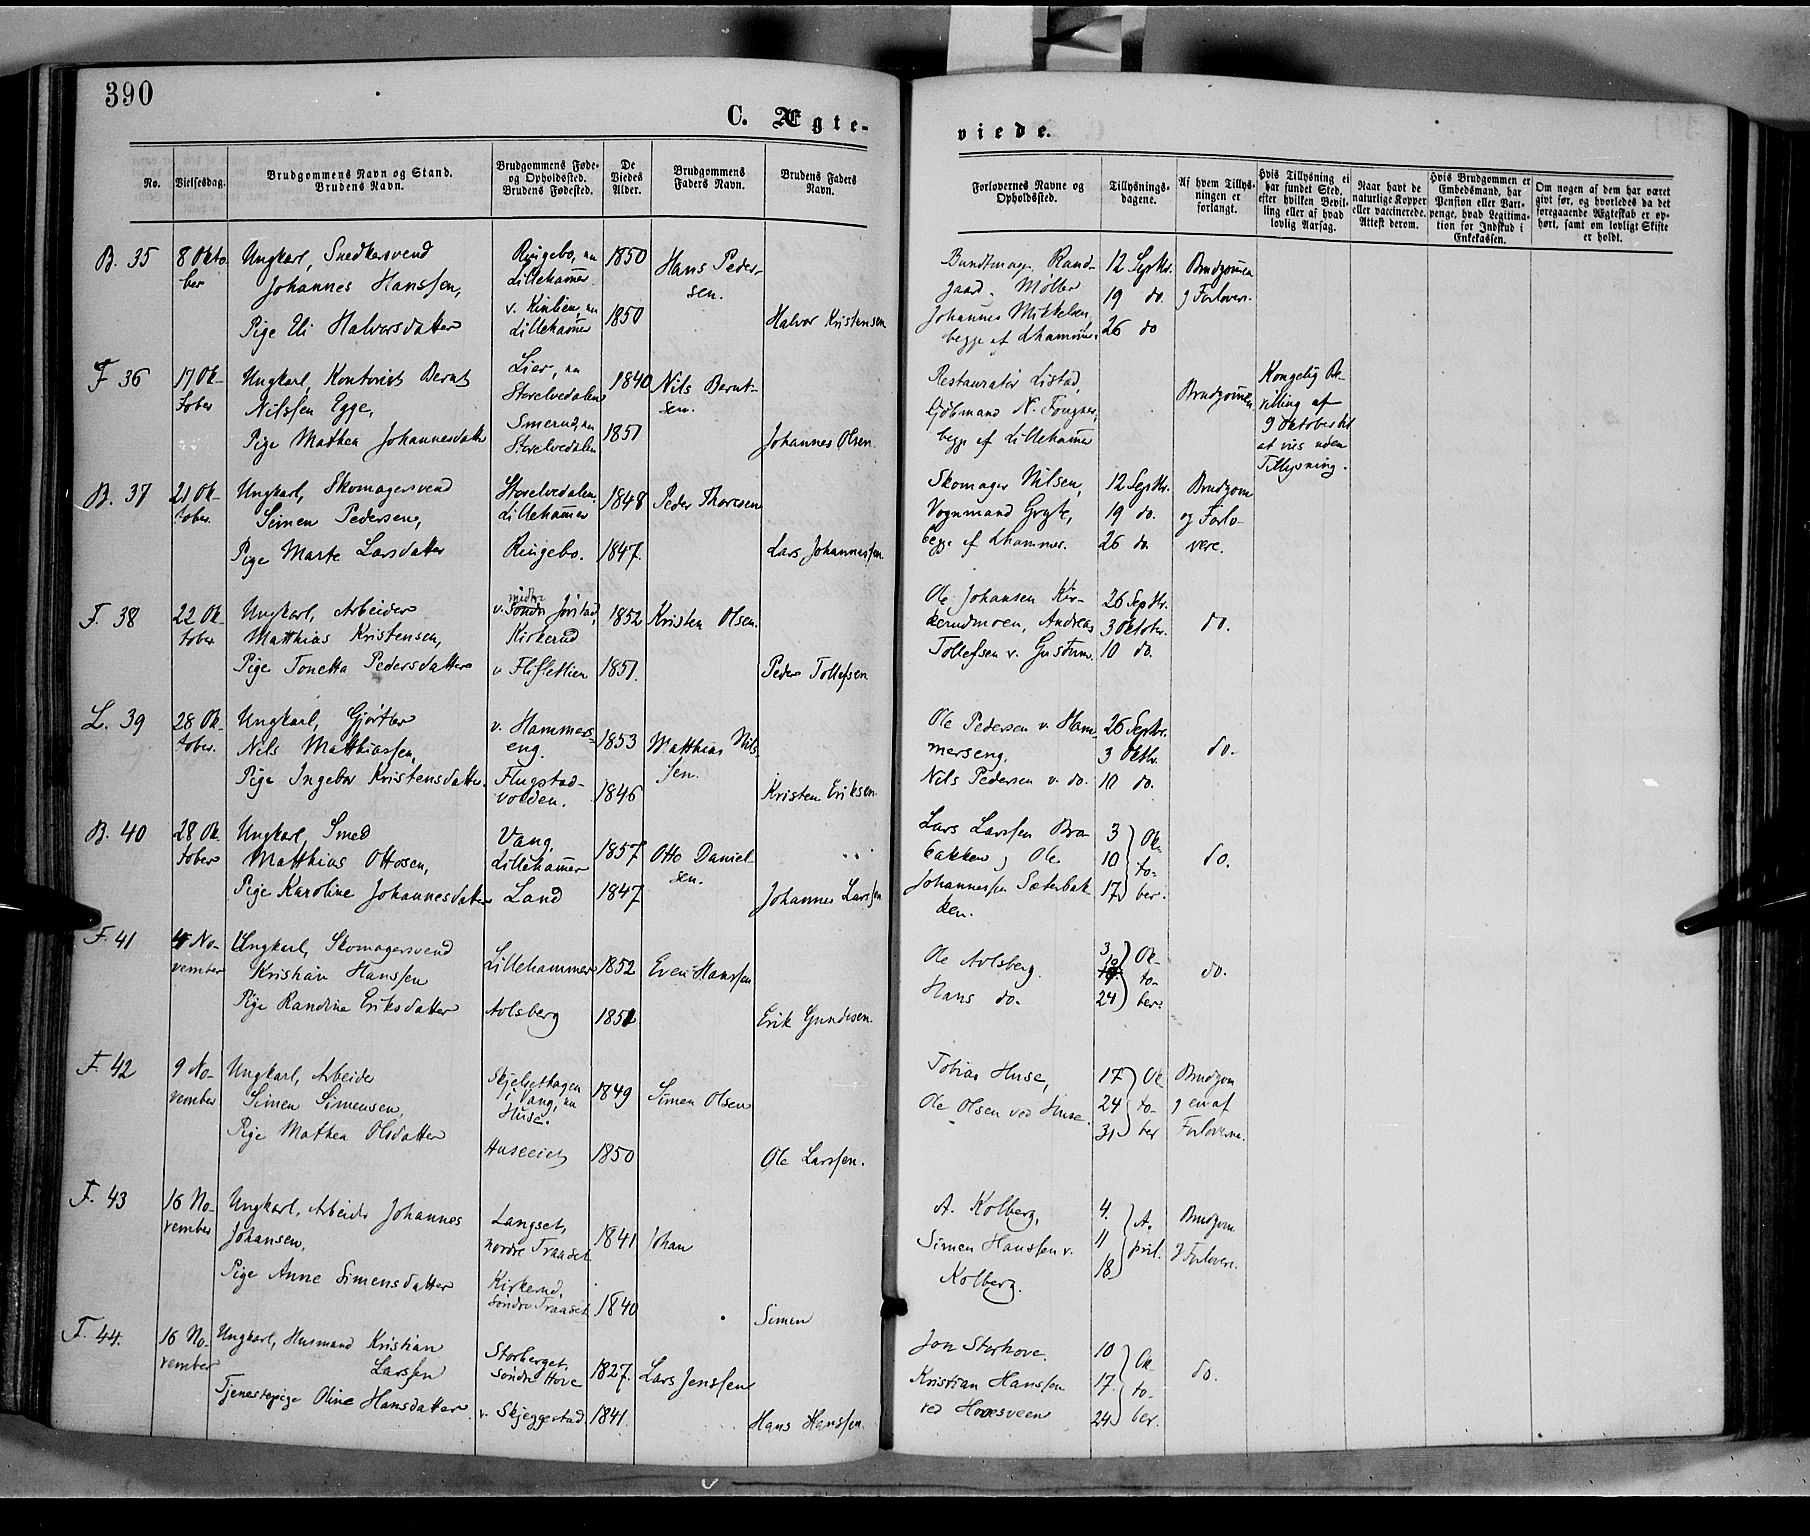 390
C. Ægte-
viede.
No.
Vielsesdag.
Brudgommens Navn og Stand.
Brudens Navn.
Brudgommens Føde-
og Opholdssted.
Brudens Fødested.
De
Viedes
Alder.
Brudgommens
Faders Navn.
Brudens Faders
Navn.
Forlovernes Navne og
Opholdssted.
Tillysnings-
dagene.
Af hvem Tillys-
ningen er
forlangt.
Hvis Tillysning ei
har fundet Sted,
efter hvilken Bevil-
ling eller af hvad
lovlig Aarsag.
Naar havt de
naturlige Kopper
eller vaccinerede.
Attest derom.
Hvis Brudgommen er
Embedsmand, har
Pension eller Vart-
penge, hvad Legitima-
tion for Indskud i
Enkekassen.
Om nogen af dem har været
givt før, og hvorledes da det
foregaaende Ægteskab er op-
hørt, samt om lovligt Skifte
er holdt.
B. 35
8 Okto-
ber
Ungkarl, Snedkersvend
Johannes Hanssen,
Pige Eli Halvorsdatter
Ringebo, nu
Lillehamer
v. Kinlien, nu
Lillehamer
1850
1850
Hans Peder-
sen.
Halvor Kristensen
Bundtmag. Rand-
gaard, Møller
Johannes Mikkelsen,
begge af Lhamer.
12 Septbr.
19 do.
26 do
Brudgomen
og Forlovere.
F. 36
17 Ok-
tober
Ungkarl, Kontorist Bernt
Nilssen Egge,
Pige Mathea Johannesdatter
Lier, nu
Storelvedalen
Smerud, nu
Storelvedalen
1840
1851
Nils Bernt-
sen.
Johannes Olsen
Restauratør Listad,
Kjøbmand N. Fougner,
begge af Lillehamer
Brudgomen
Kongelig Be-
villing af
9 Oktober til
at vies uden
Tillysning.
B. 37
21 Ok-
tober.
Ungkarl, Skomagersvend
Simen Pedersen,
Pige Marte Larsdatter
Storelvedalen.
Lillehamer
Ringebo.
1848
1847.
Peder Thoresen
Lars Johannessen.
Skomager Nilsen,
Vognmand Gryte,
begge af Lhammer.
12 Septbr.
19 do.
26 do.
Brudgom
og Forlo-
vere.
F. 38
22 Ok-
tober
Ungkarl, Arbeider
Matthias Kristensen,
Pige Tonetta Pedersdatter
midtre
v. Søndre Jørstad,
Kirkerud
v. Flisetlien
1852
1851.
Kristen Olsen.
Peder Tollefsen
Ole Johansen Kir-
kerudmoen, Andreas
Tollefsen v. Gustum.
26 Septbr.
3 Oktober.
10 do.
do.
L. 39
28 Ok-
tober.
Ungkarl, Gjørtler
Nils Matthiassen,
Pige Ingebor Kristensdatter.
v. Hammers-
eng.
Flugstad-
volden.
1853
1846
Matthias Nils-
sen.
Kristen Eriksen.
Ole Pedersen v. Ham-
merseng.
Nils Pedersen v. do.
26 Septbr.
3 Oktbr.
10 do.
do.
B. 40
28 Ok-
tober
Ungkarl, Smed
Matthias Ottosen,
Pige Karoline Johannesdatter
Vang.
Lillehamer
Land
1857
1847
Otto Daniel-
sen.
Johannes Larssen
Lars Larssen Bra-
bakken, Ole
Johannessen Sæterbak-
ken.
3
10
17
Ok-
to-
ber.
do.
F. 41
4 No-
vember
Ungkarl, Skomagersvend
Kristian Hanssen
Pige Randine Eriksdatter
Lillehammer
Avlsberg
1852
1851
Even Hanssen
Erik Gundesen.
Ole Avlsberg.
Hans do.
3
24
Ok-
to-
ber.
do.
F. 42
9 No-
vember
Ungkarl, Arbeider
Simen Simensen,
Pige Mathea Olsdatter
Skjelsethagen
i Vang, nu
Huse.
Huseeiet
1849
1850
Simen Olsen
Ole Larssen.
Tobias Huse,
Ole Olsen ved Huse.
17
24
31
Ok-
to-
ber
Brudgom
og en af
Forloverne.
F. 43
16 No-
vember
Ungkarl, Arbeider Johannes
Johansen,
Pige Anne Simensdatter
Langset,
nordre Traaset
Kirkerud,
søndre Traaset
1841
1840
Johan
Simen
A. Kolberg,
Simen Hanssen v.
Kolberg.
4.
11
18
A-
pril.
Brudgom
og Forlovere.
F. 44.
16 No-
vember
Ungkarl, Husmand Kristian
Larssen
Tjenestepige Oline Hansdatter
Storberget,
søndre Hove
v. Skjeggestad
1827.
1841.
Lars Jenssen
Hans Hanssen.
Jon Storhove.
Kristian Hanssen
ved Hovesveen
10
17.
24
Ok-
to-
ber.
do.